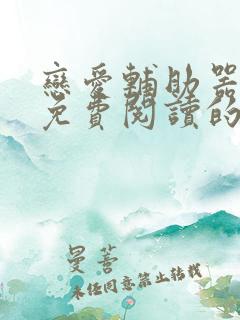 戀愛輔助器
免費閱讀的
曼蓍
未經同意禁止转载